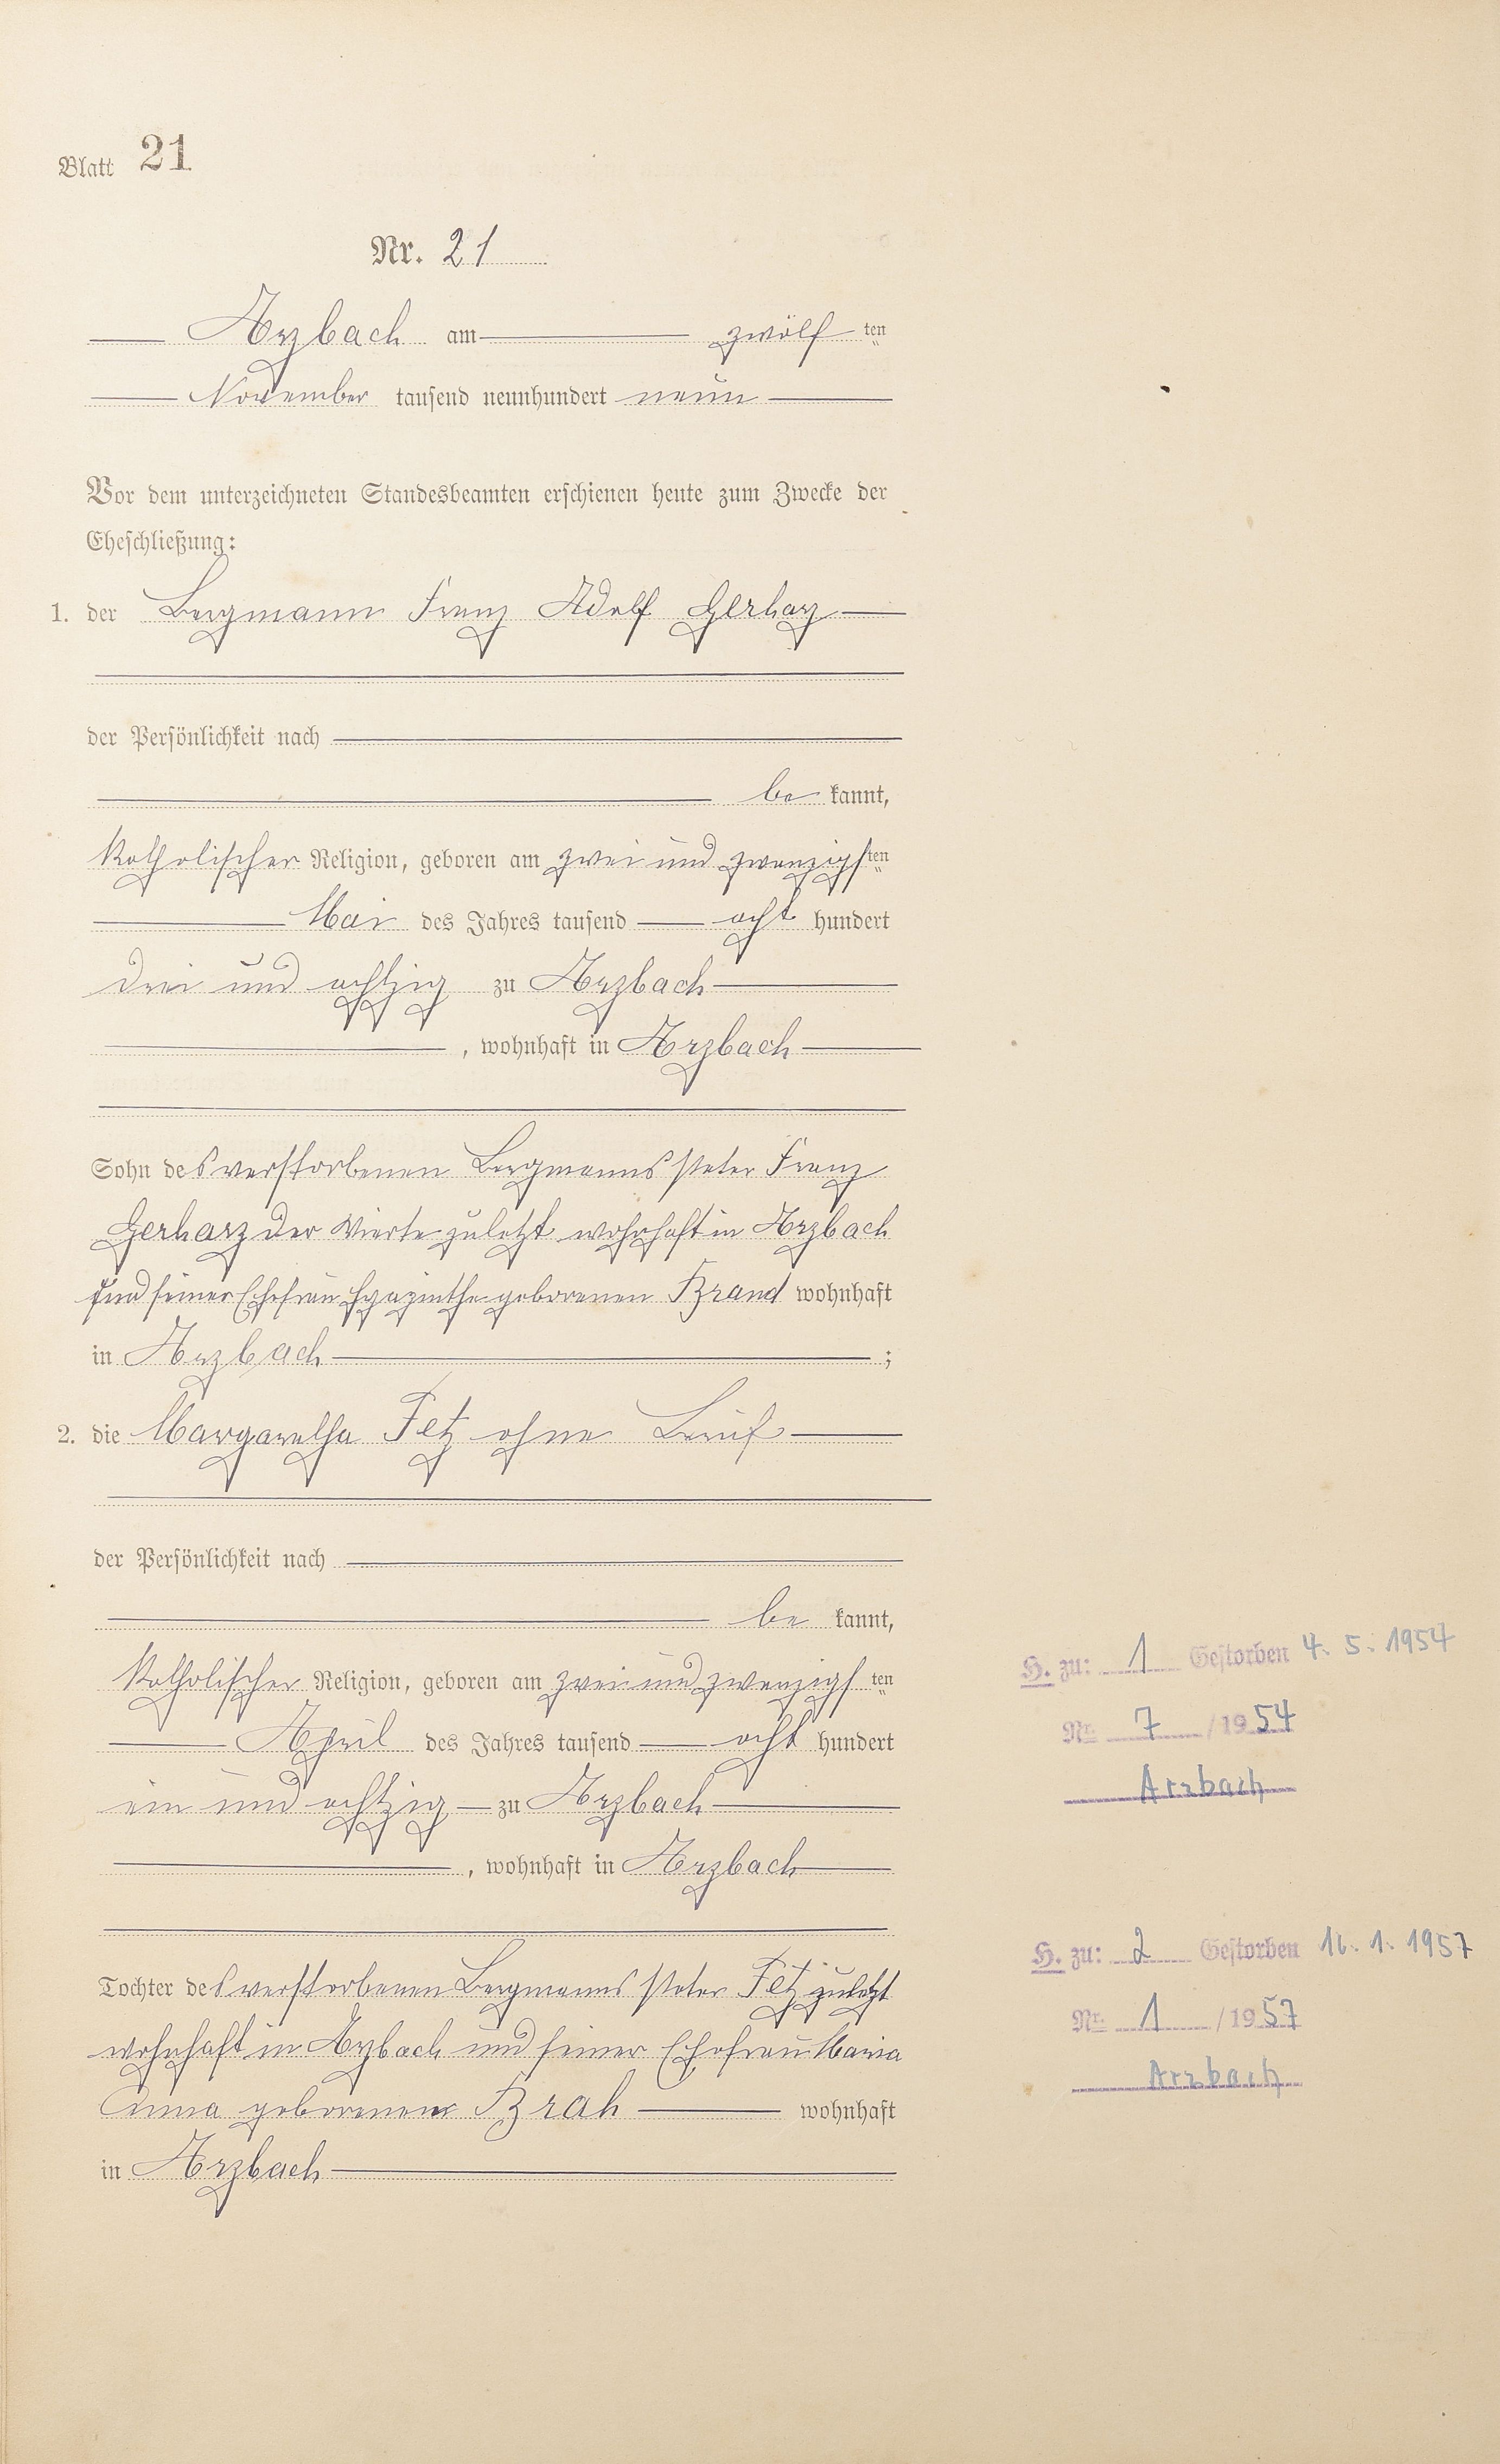 Blatt 21
Nr. 21
Arzbach am zwölften
November tausend neunhundert neun
Vor dem unterzeichneten Standesbeamten erschienen heute zum Zwecke der
Eheschließung:
1. der Bergmann Franz Adolf Gerharz
der Persönlichkeit nach
be kannt,
katholischer Religion, geboren am zwei und zwanzigsten
Mai des Jahres tausend acht hundert
drei und achtzig zu Arzbach
, wohnhaft in Arzbach
Sohn des verstorbenen Bergmanns Peter Franz
Gerharz der Vierte zuletzt wohnhaft in Arzbach
und seiner Ehefrau Hyazinthe geborenen Brand wohnhaft
in Arzbach ;
2. die Margaretha Fetz ohne Beruf
der Persönlichkeit nach
be kannt,
katholischer Religion, geboren am zwei und zwanzigsten
April des Jahres tausend acht hundert
ein und achtzig zu Arzbach
, wohnhaft in Arzbach
Tochter des verstorbenen Bergmanns Peter Fetz zuletzt
wohnhaft in Arzbach und seiner Ehefrau Maria
Anna geborenen Brah wohnhaft
in Arzbach
H. zu: 1 Gestorben 4. 5. 1954
Nr. 7 / 19 54
Arzbach
H. zu: 2 Gestorben 16. 1. 1957
Nr. 1 / 19 57
Arzbach